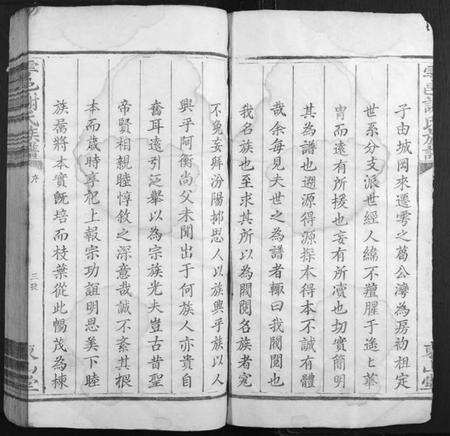 雲邑謝氏族譜
東山堂
子由城岡來遷雲之葛公灣為房祖定
世系分支派世經人緯不羶腥于遙〻華
冑而遠有所援也妄有所瀆也切實簡明
其為譜也遡源得源探本得本不誠有體
哉余每見夫世之為譜者輒曰我閥閱也
我名族也至求其所以為閥閱名族者究
不免妄拜汾陽鄙思人以族興乎族以人
興乎阿衡尚父未聞出于何族人亦貴自
奮耳遠引泛攀以為宗族光夫豈古昔聖
帝賢相親睦惇敘之深意哉誠不紊其根
本而歲時享祀上報宗功誼明恩美下睦
族屬將本實旣培而枝葉從此暢茂為棟
雲邑謝氏族譜
序
三
東山堂